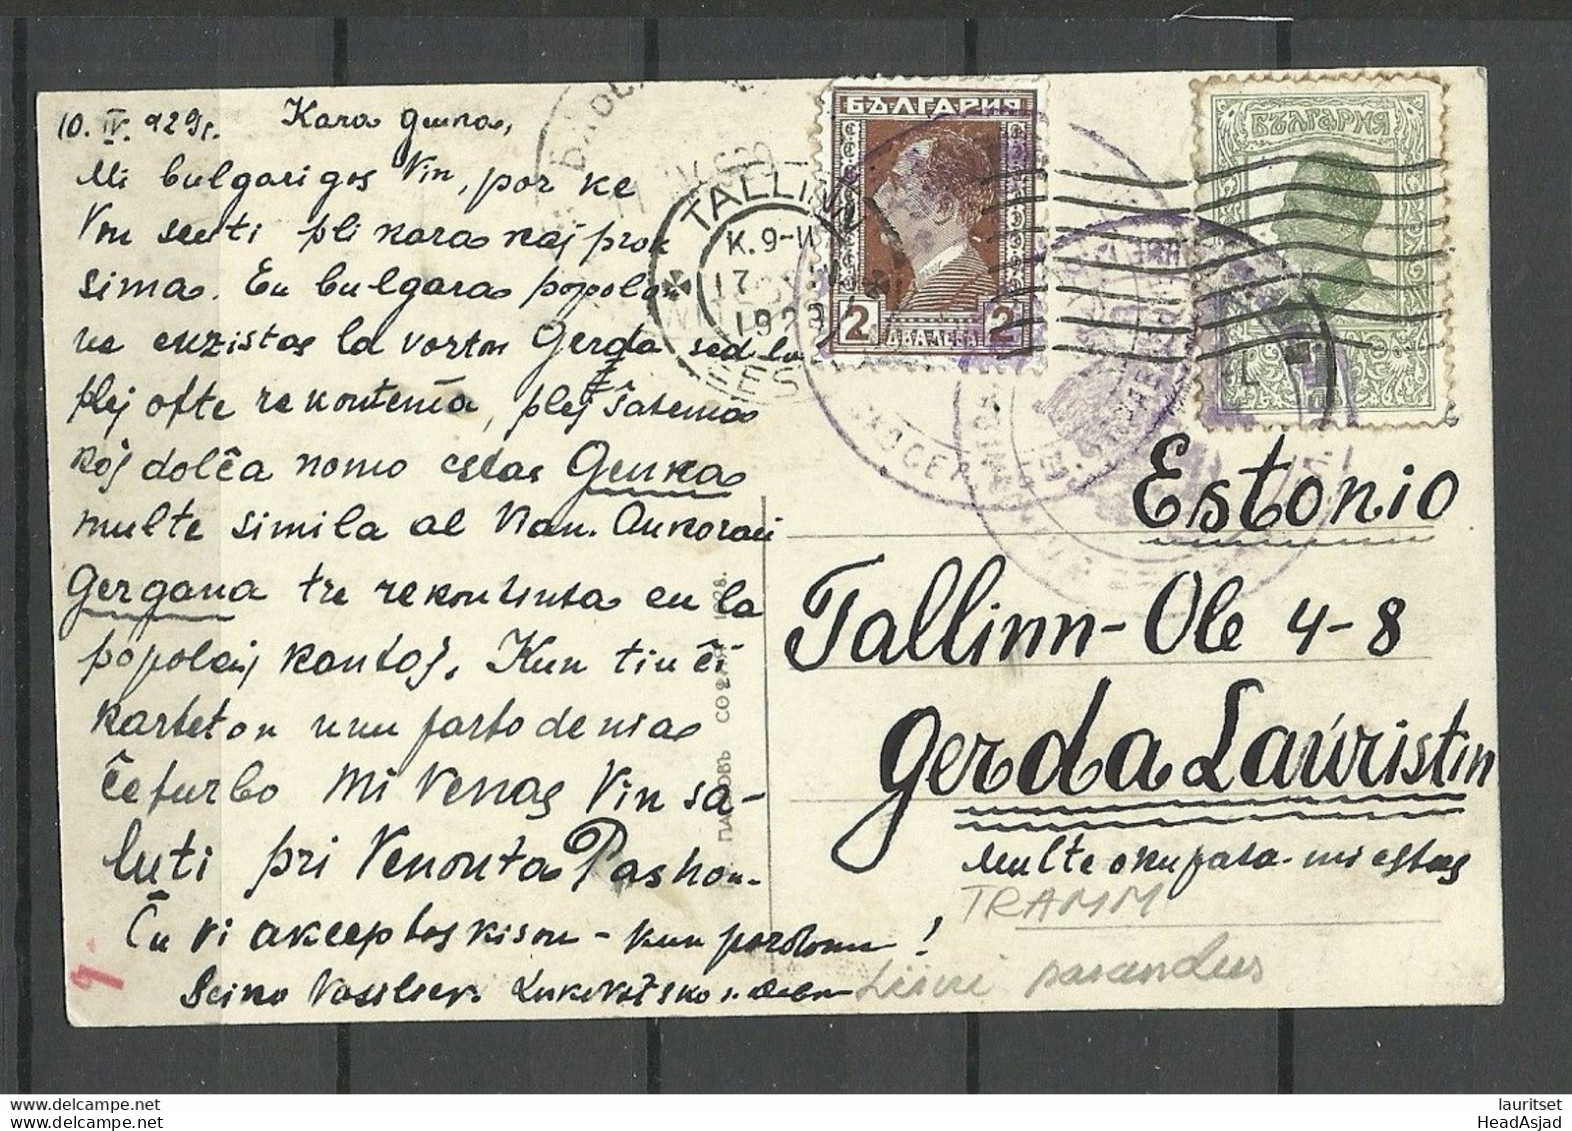 10. IV. 929г. Kara Genka,
Mi bulgarigos Vin, por ke
Vin senti pli kara kaj prok
sima. En bulgara popolo
ne ekzistas la vorton Gerda sed la
plej ofte rekontema, plej ŝatema
kaj dolĉa nomo estas Genka
multe simila al Vian. Ankoraŭ
Gergana tre rekontinta en la
popolaj kantoj. Kun tiu ĉi
karteton unu parto de nia
ĉefurbo mi venas Vin sa-
luti pri Venonta Paskon.
Ĉu vi akceptas kison - kun pardonu!
Vassilev.
БЪЛГАРИЯ
2 ДВА ЛЕВА 2
БЪЛГАРИЯ
TALLINN
K. 9-
17
EESTI
Estonio
Tallinn - Ole 4-8
Gerda Lauristin
multe okupata mi estas
TRAMM
Liini parandus
lauritset
HeadAsjad